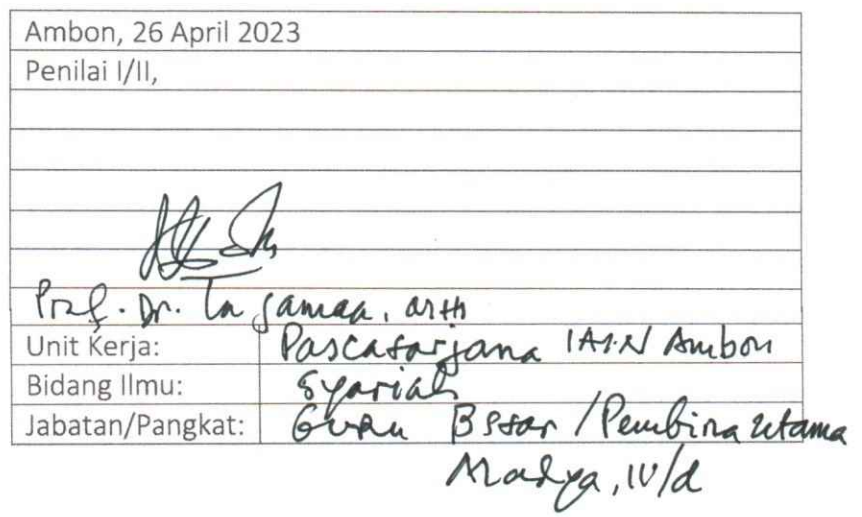 Ambon, 26 April 2023
Penilai I/II,
Prof. Dr. La Jamaa, MH
Unit Kerja: Pascasarjana IAIN Ambon
Bidang Ilmu: Syariah
Jabatan/Pangkat: Guru Besar / Pembina Utama
Madya, IV/d